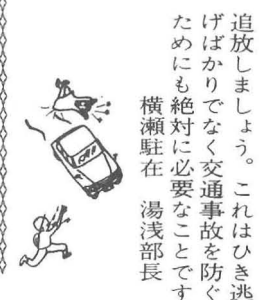 追放しましょう。これはひき逃
げばかりでなく交通事故を防ぐ
ためにも絶対に必要なことです
横瀬駐在　湯浅部長